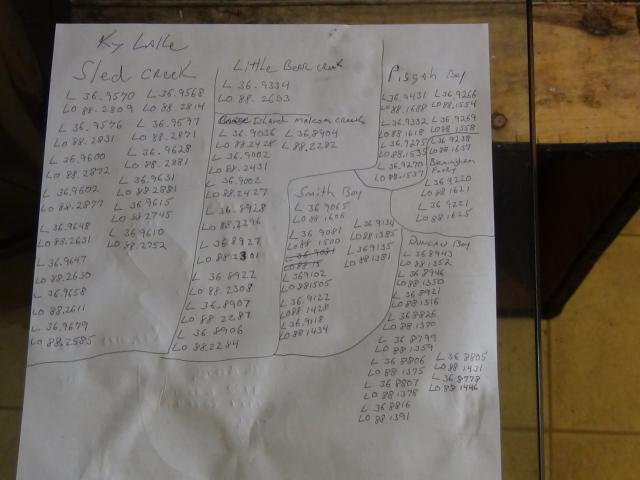 Ky Lake
Sled Creek
L 36.9570 L 36.9568
LO 88.2809 LO 88.2814
L 36.9576 L 36.9597
LO 88.2831 LO 88.2871
L 36.9600 L 36.9628
LO 88.2872 LO 88.2881
L 36.9602 L 36.9631
LO 88.2877 LO 88.2881
L 36.9615
LO 88.2745
L 36.9648 L 36.9610
LO 88.2631 LO 88.2752
L 36.9647
LO 88.2630
L 36.9658
LO 88.2611
L 36.9679
LO 88.2585
Little Bear Creek
L 36.9334
LO 88.2603
Island Malcom Creek
L 36.9036 L 36.8904
LO 88.2428 LO 88.2282
L 36.9002
LO 88.2431
L 36.9002
LO 88.2427
L 36.8928
LO 88.2296
L 36.8927
LO 88.2301
L 36.8922
LO 88.2308
L 36.8907
LO 88.2287
L 36.8906
LO 88.2284
Pisgah Bay
L 36.9431 L 36.9266
LO 88.1688 LO 88.1554
L 36.9332 L 36.9269
LO 88.1618 LO 88.1558
L 36.9275 L 36.9238
LO 88.1535 LO 88.1637
L 36.9270
LO 88.1537
L 36.9220
LO 88.1621
L 36.9221
LO 88.1625
Smith Bay
L 36.9065
LO 88.1606
L 36.9081 L 36.9134
LO 88.1500 LO 88.1385
L 36.9081 L 36.9135
LO 88.15 LO 88.1381
L 36.9102
LO 88.1505
L 36.9122
LO 88.1428
L 36.9118
LO 88.1434
Duncan Bay
L 36.8943
LO 88.1352
L 36.8946
LO 88.1350
L 36.8921
LO 88.1316
L 36.8826
LO 88.1370
L 36.8799
LO 88.1359
L 36.8806 L 36.8805
LO 88.1375 LO 88.1431
L 36.8807 L 36.8778
LO 88.1378 LO 88.1446
L 36.8816
LO 88.1391